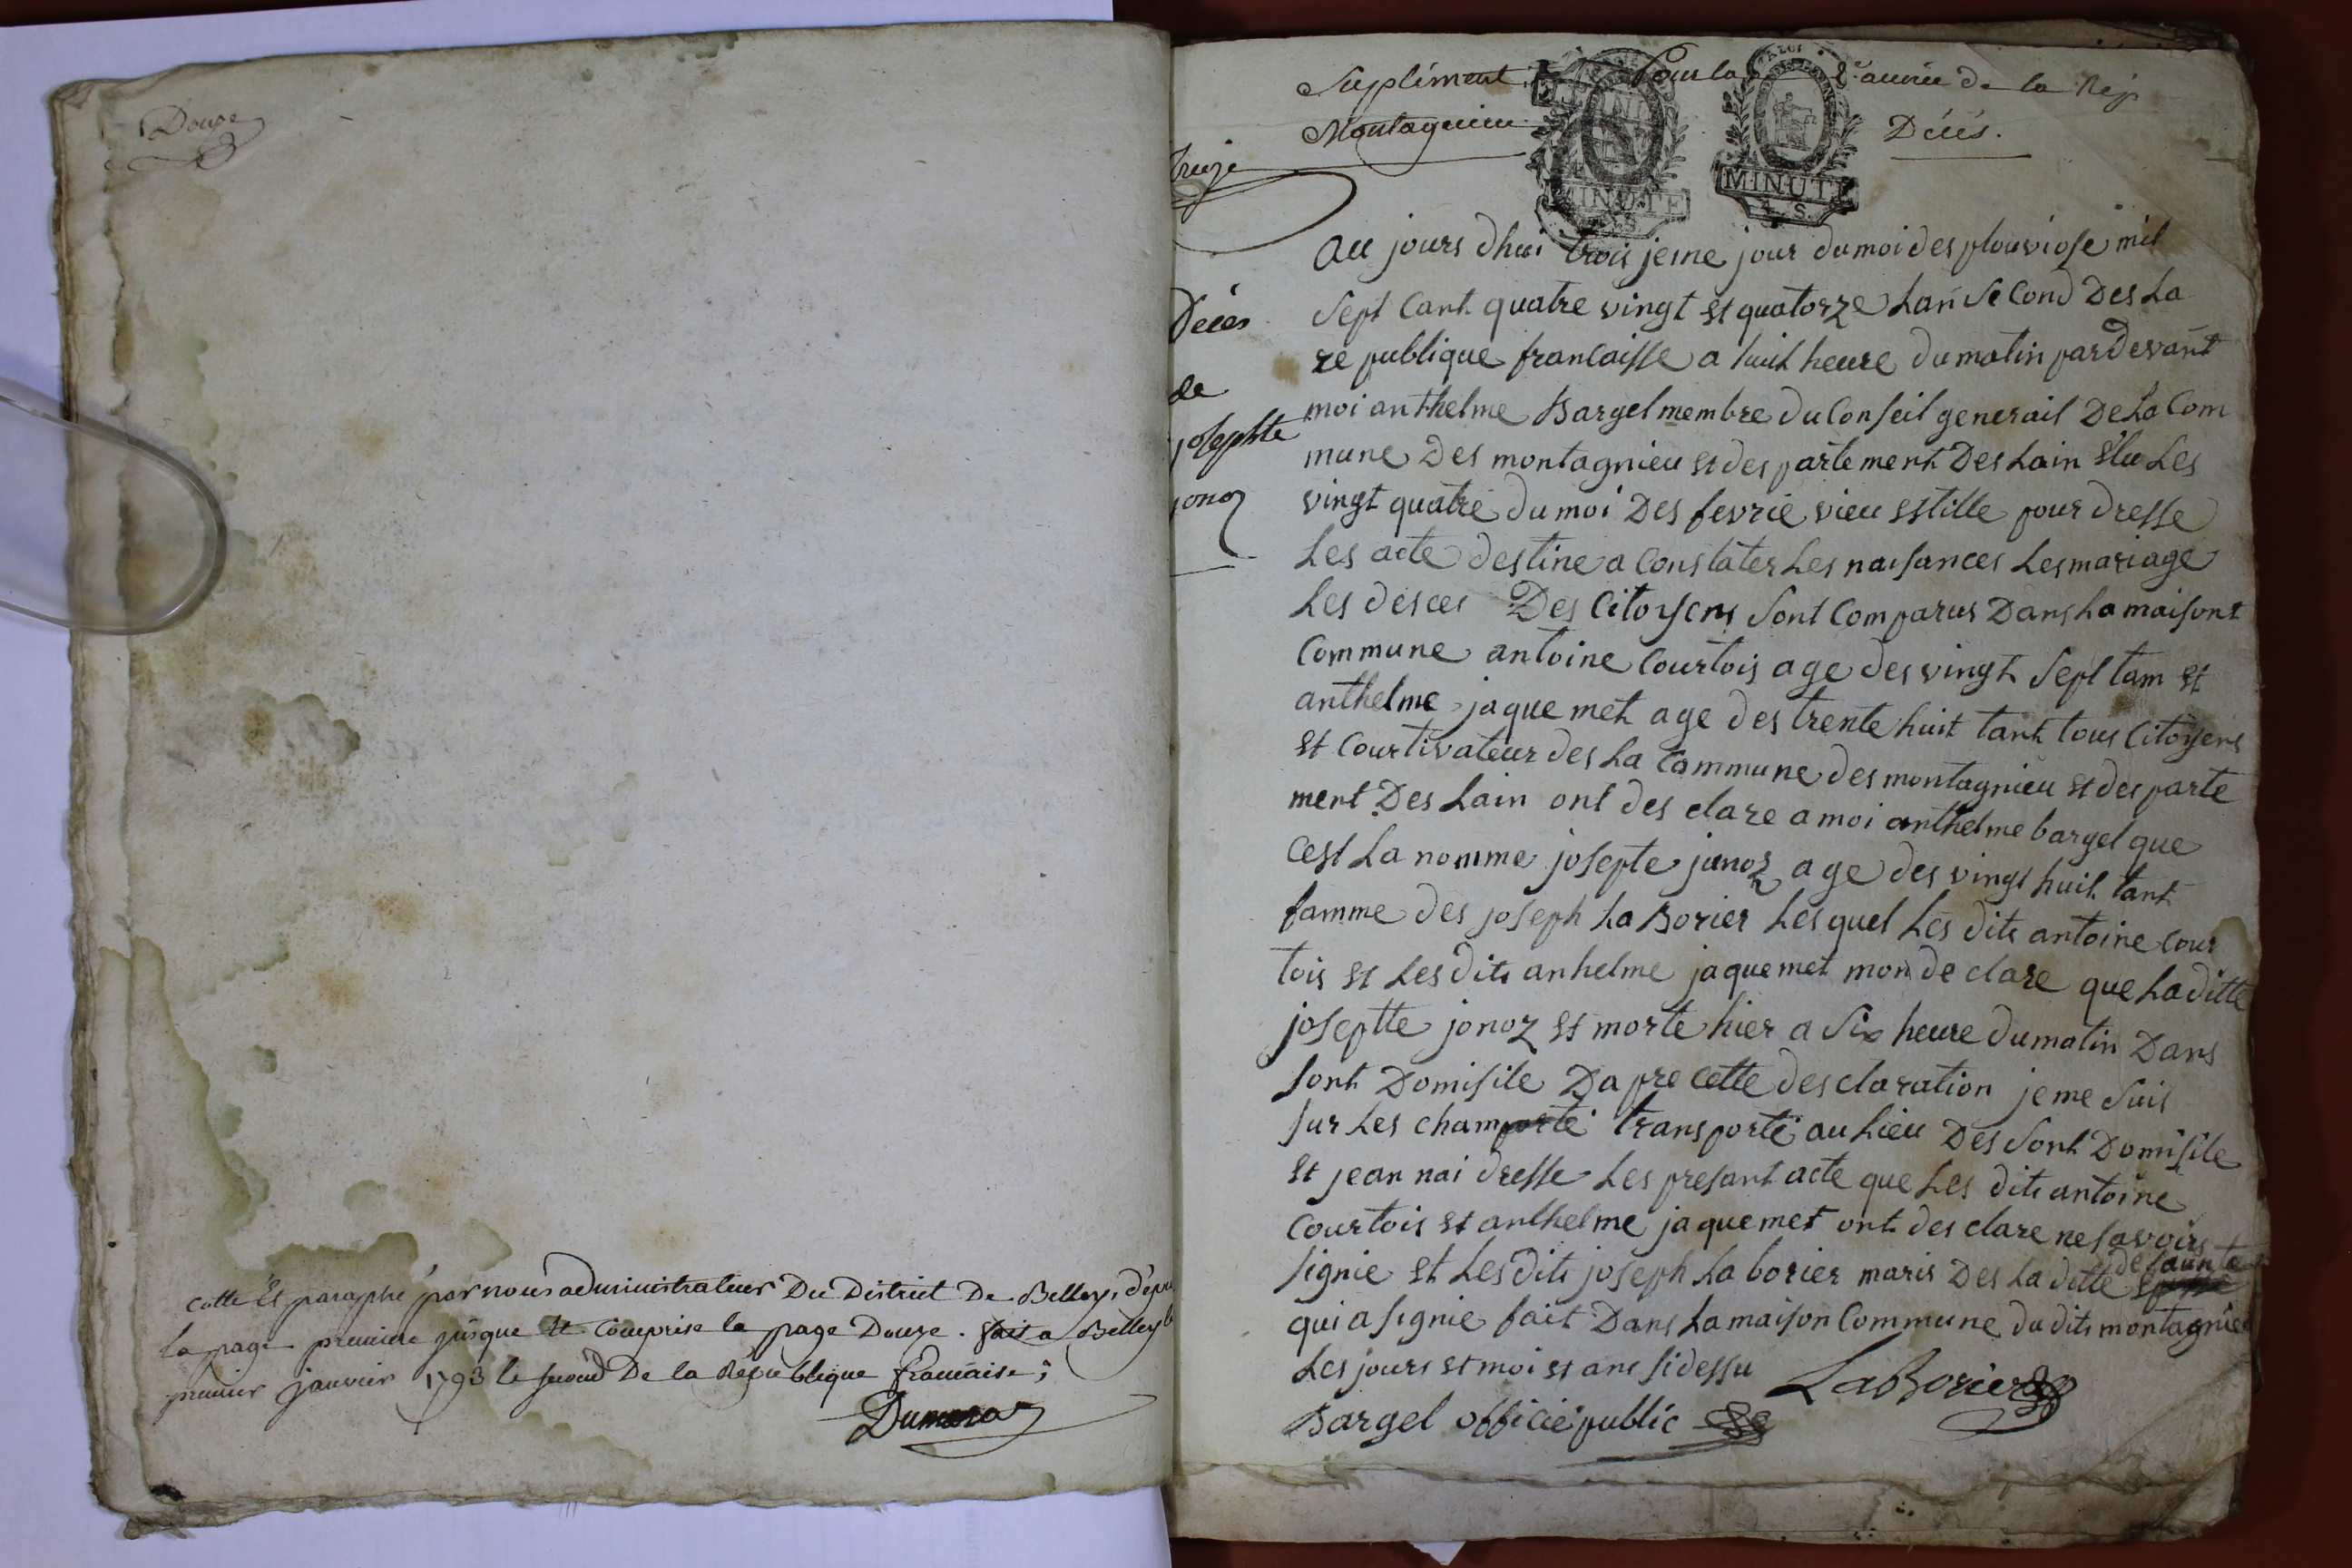 Douze
Cotté Et paraphé par nous administrateur Du District De Belley, depui
la page premiere jusque Et Comprise la page Douze. fait a Belley l
premier janvier 1793 le second De la République francaise;
Supliment Pour la 2e année de la Rép
Montagnieu Décés.
treize
Décés
de
josephte
jonoz
MINUTE
MINUTE
4 S
au jours dhui trois jeme jour du moi des plouviose mil
sept Cant quatre vingt et quatorze Lan se Cond Des La
re publique francaisse a huit heure du matin par devant
moi anthelme Bargel membre du Conseil generail De La Com
mune Des montagnieu et des partement Des Lain élu Les
vingt quatre du moi Des fevrié vieu estille pour dresse
Les acte destine a Constater Les naisances Les mariage
Les desces Des Citoyens sont Comparus Dans La maisont
Commune antoine Courtois age des vingt sept tam et
anthelme jaque met age des trente huit tant tous Citoyens
et Courtivateur des La Commune des montagnieu et des parte
ment Des Lain ont des clare a moi anthelme bargel que
Cest La nomme josepte junoz age des vingt huit tant
famme des joseph La Borier Les quel Les dits antoine Cour
tois et Les dits anhelme jaquemet mon de clare que La ditte
joseptte jonoz et morte hier a six heure du matin Dans
sont Domisile Da pre cette des claration je me suis
sur Les champorté transporté au Lieu Des sont Domisile
et jean nai dresse Les presant acte que Les dits antoine
Courtois et anthelme jaquemet ont des clare ne savoirs
signie et Les dits joseph La borier maris Des La ditte defaunte
qui a signie fait Dans La maison Commune du dits montagnieu
Les jours et moi et ans sidessu
LaBorier
Bargel officié public